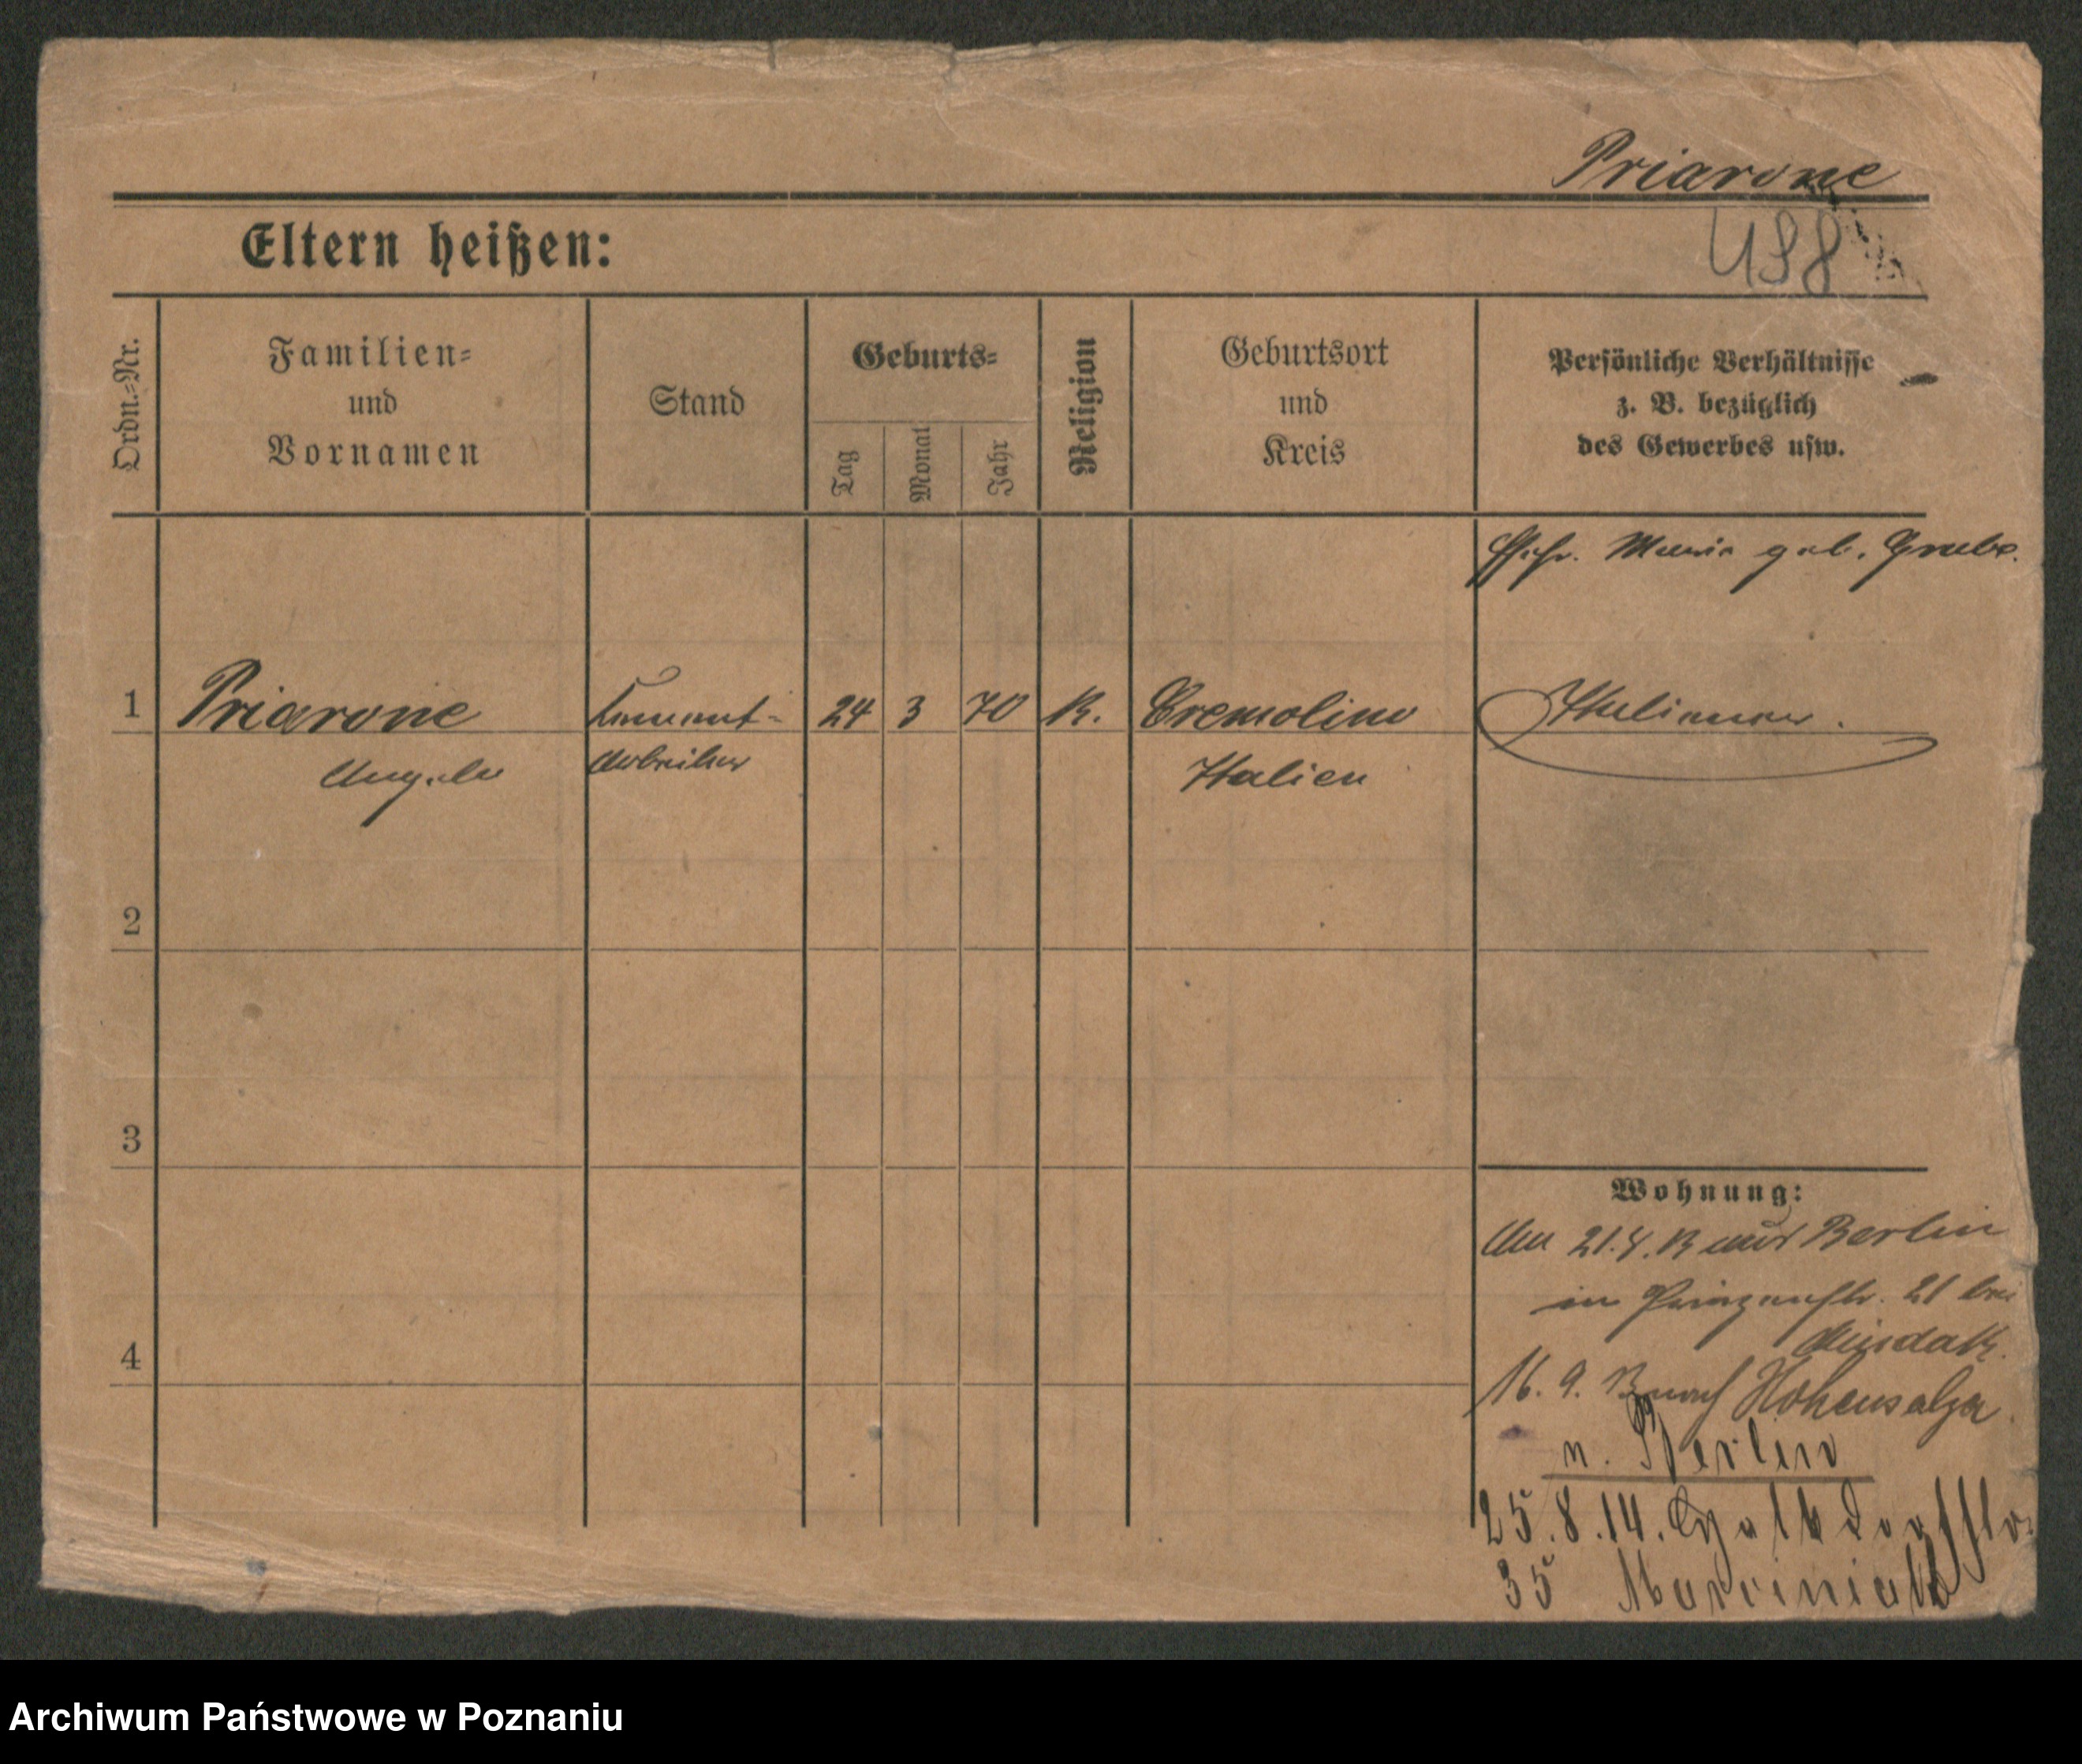 Priarone
Eltern heißen:
Ordn.=Nr.
Familien=
und
Vornamen
Stand
Geburts=
Tag
Monat
Jahr
Religion
Geburtsort
und
Kreis
Persönliche Verhältnisse
z. B. bezüglich
des Gewerbes usw.
Ehefr. Maria geb.
1 Priarone Cement- 24 3 70 K. Cremolino Italiener.
Angelo Arbeiter Italien
2
3
4
Wohnung:
Am 21.4.13 aus Berlin
in Prinzenstr. 21 bei
16. 9. 13 nach Hohensalza
n. Berlin
25.8.14.
35 Marciniak
Archiwum Państwowe w Poznaniu